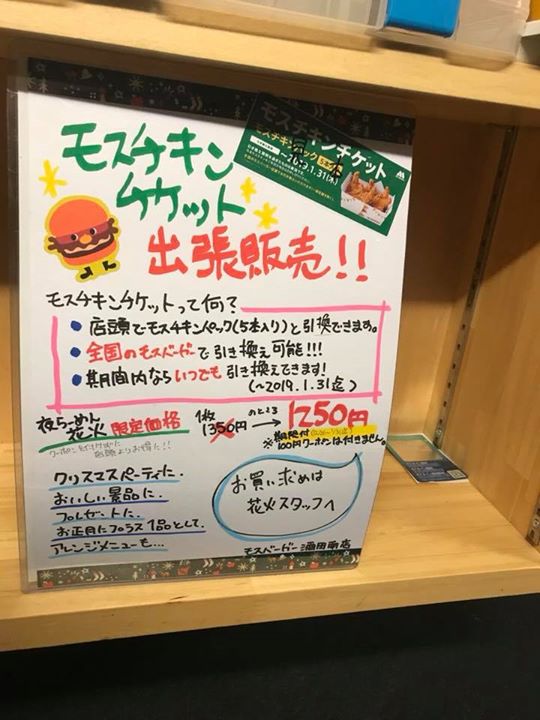 モスチキン
チケット
出張販売!!
モスチキンチケット
モスチキンパック
~2019.1.31(木)
モスチキンチケットって何?
• 店頭でモスチキンパック(5本入り)と引換できます。
• 全国のモスバーガーで引き換え可能!!!
• 期間内ならいつでも引き換えできます!
(~2019.1.31迄)
夜らーめん
花火 限定価格
1枚 のところ
1350円 → 1250円
クーポン付けずに
店頭よりお得に!!
※期限付
100円クーポンは付きません。
クリスマスパーティに、
おいしい景品に、
プレゼントに、
お正月にプラス1品として、
アレンジメニューも…
お買い求めは
花火スタッフへ
モスバーガー酒田南店